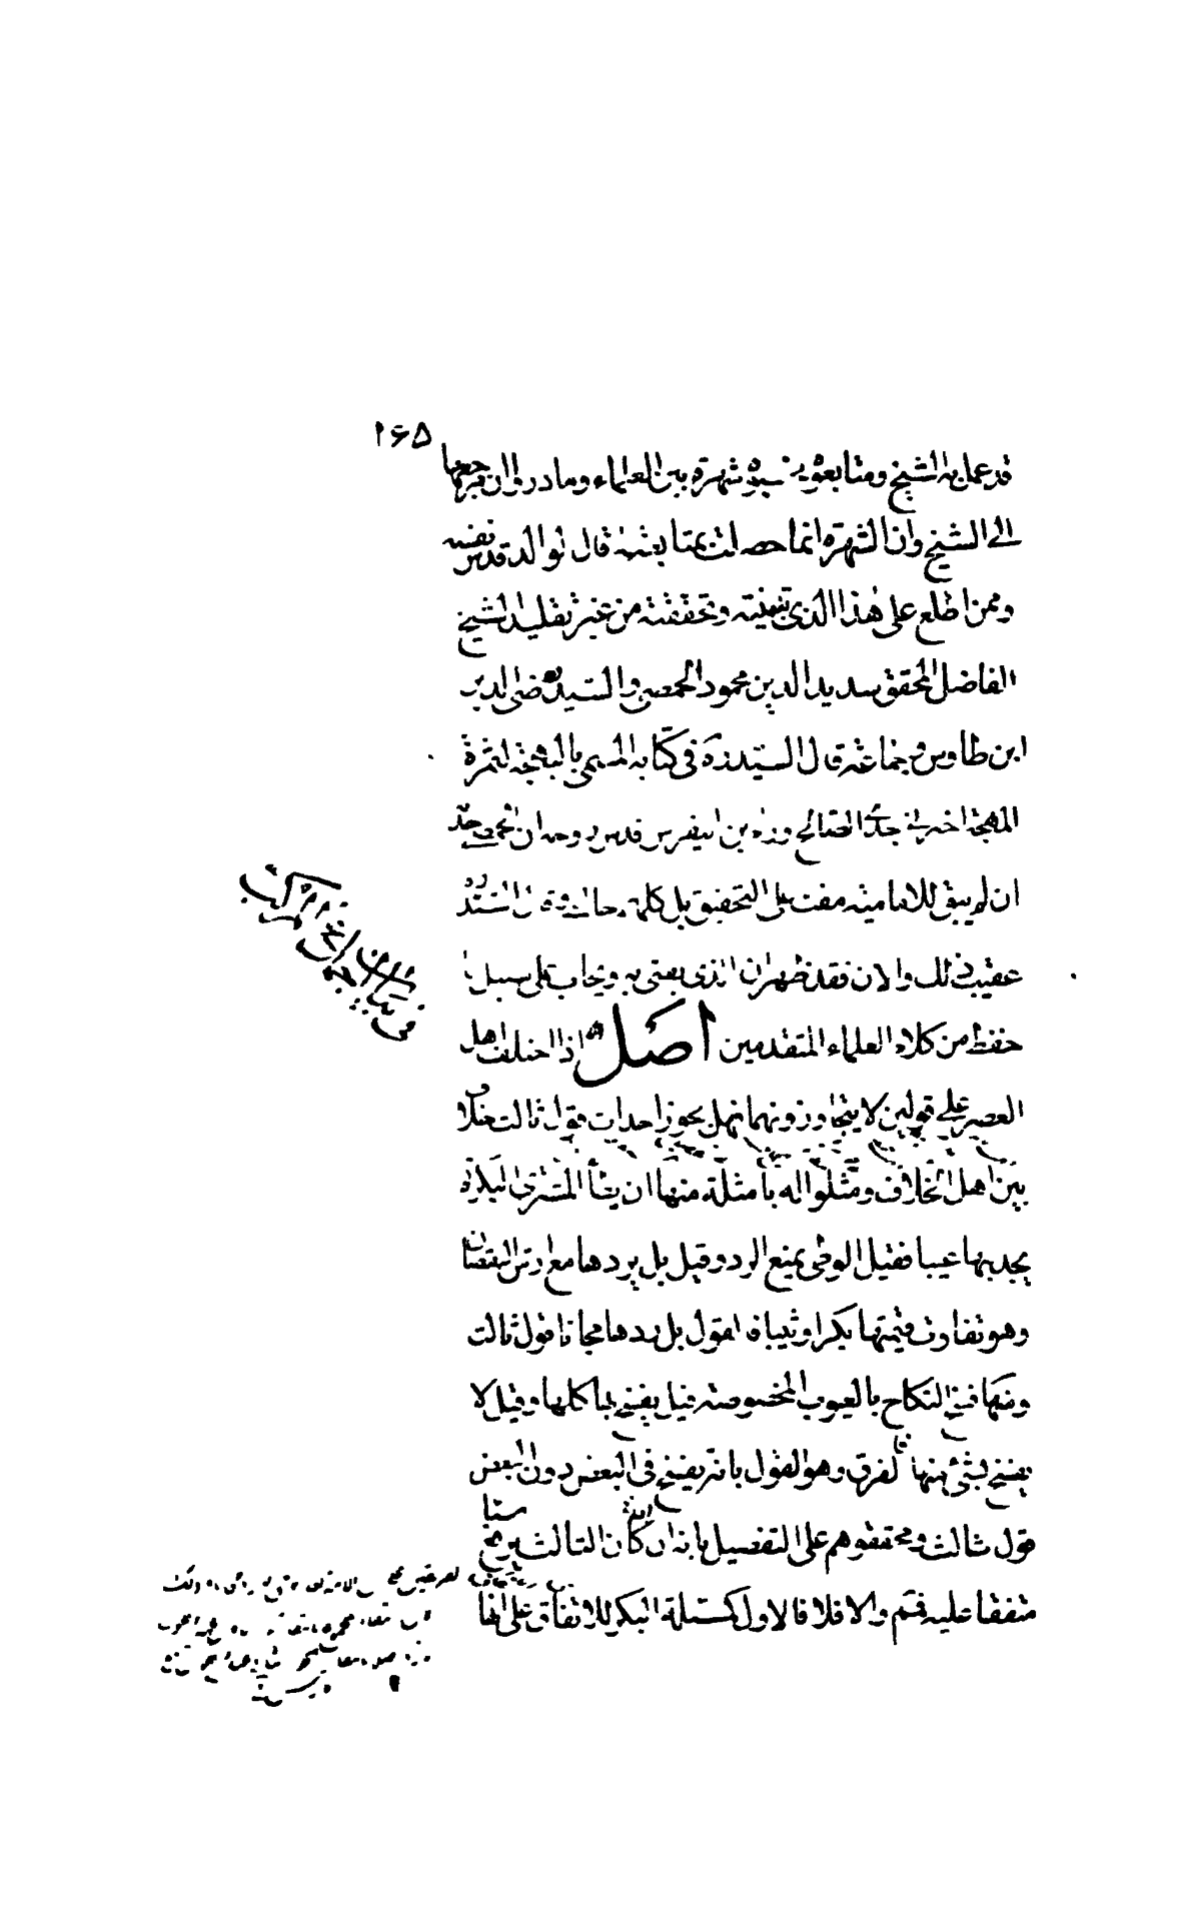 ١٦٥
قد عمل به الشيخ ومتابعوه شهرة بين العلماء وما دروا ان مرجعها
الى الشيخ وان الشهرة انما حصلت بمتابعته قال الوالد قدس نفسه
وممن اطلع على هذا الذى تبينته وتحققته من غير تقليد الشيخ
الفاضل المحقق سديد الدين محمود الحمصى والسيد رضى الدين
ابن طاوس وجماعة قال السيد ره فى كتابه المسمى بالبهجة لثمرة
المهجة اخبرنى جدى الصالح ورام بن ابيفرس قدس روحه ان الحمصى حدثه
ان لم يبق للامامية مفت على التحقيق بل كلهم حاك وقال السيد ره
عقيب ذلك والان فقد ظهر ان الذى يفتى به ويجاب على سبيل ما
حفظ من كلام العلماء المتقدمين اصل اذا اختلف اهل
العصر على قولين لا يتجاوزونهما فهل يجوز احداث قول ثالث خلاف
بين اهل الخلاف ومثلوا له بامثلة منها ان يطأ المشترى البكر ثم
يجد بها عيبا فقيل الوطى يمنع الرد وقيل بل يردها مع ارش النقصان
وهو تفاوت قيمتها بكرا وثيبا فالقول بل يردها مجانا قول ثالث
ومنها فسخ النكاح بالعيوب المخصوصة قيل يفسخ بها كلها وقيل لا
يفسخ بشىء منها فالفرق وهو القول بانه يفسخ فى البعض دون البعض
قول ثالث ومحققوهم على التفصيل بانه ان كان الثالث يرفع شيئا
متفقا عليه فمم والا فلا فالاول كمسئلة البكر للاتفاق على انها
فى بيان الاجماع المركب